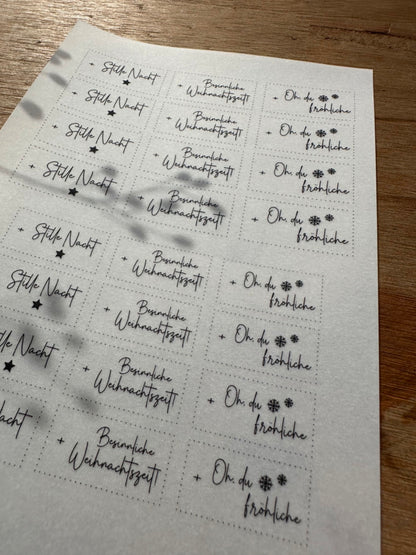 + Stille Nacht
+ Besinnliche
Weihnachtszeit!
+ Oh, du
fröhliche
+ Stille Nacht
+ Besinnliche
Weihnachtszeit!
+ Oh, du
fröhliche
+ Stille Nacht
+ Besinnliche
Weihnachtszeit!
+ Oh, du
fröhliche
+ Stille Nacht
+ Besinnliche
Weihnachtszeit!
+ Oh, du
fröhliche
+ Stille Nacht
+ Besinnliche
Weihnachtszeit!
+ Oh, du
fröhliche
Stille Nacht
+ Besinnliche
Weihnachtszeit!
+ Oh, du
fröhliche
lle Nacht
+ Besinnliche
Weihnachtszeit!
+ Oh, du
fröhliche
acht
+ Besinnliche
Weihnachtszeit!
+ Oh, du
fröhliche